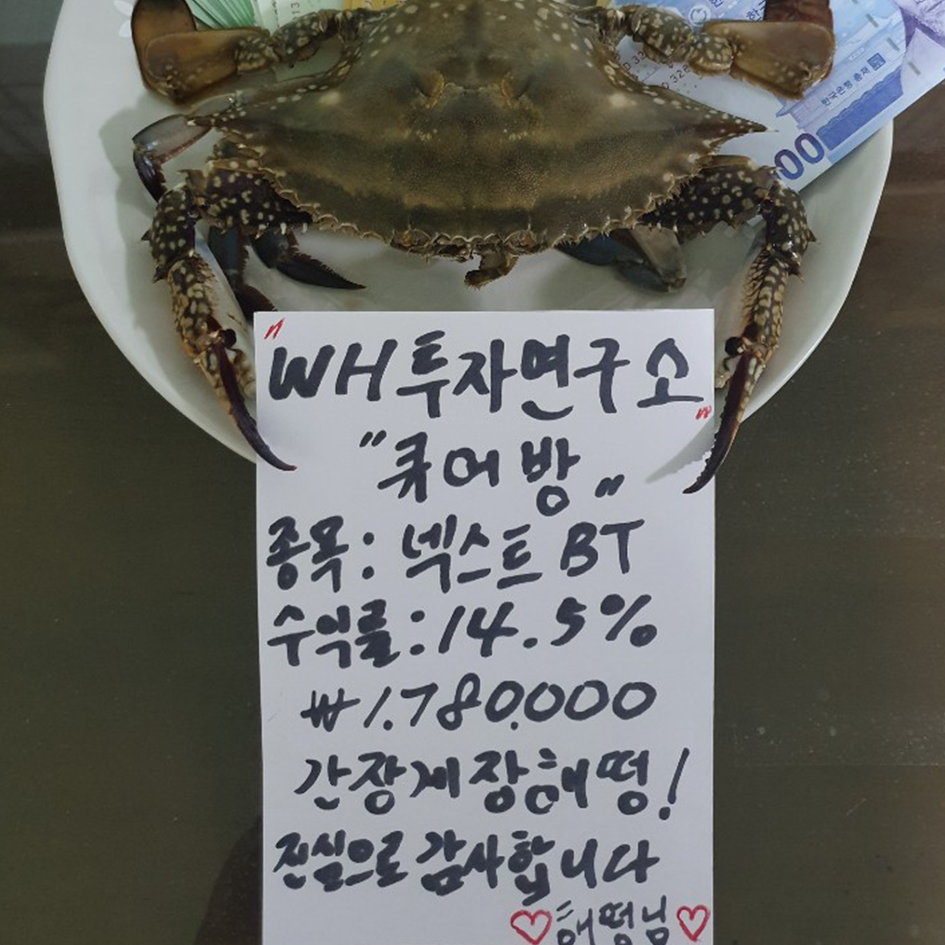 "WH투자연구소"
"큐어방"
종목: 넥스트BT
수익률:14.5%
₩1.780.000
간장게장해떵!
진실으로 감사합니다
♡해떵님♡
한국은행 총재
00